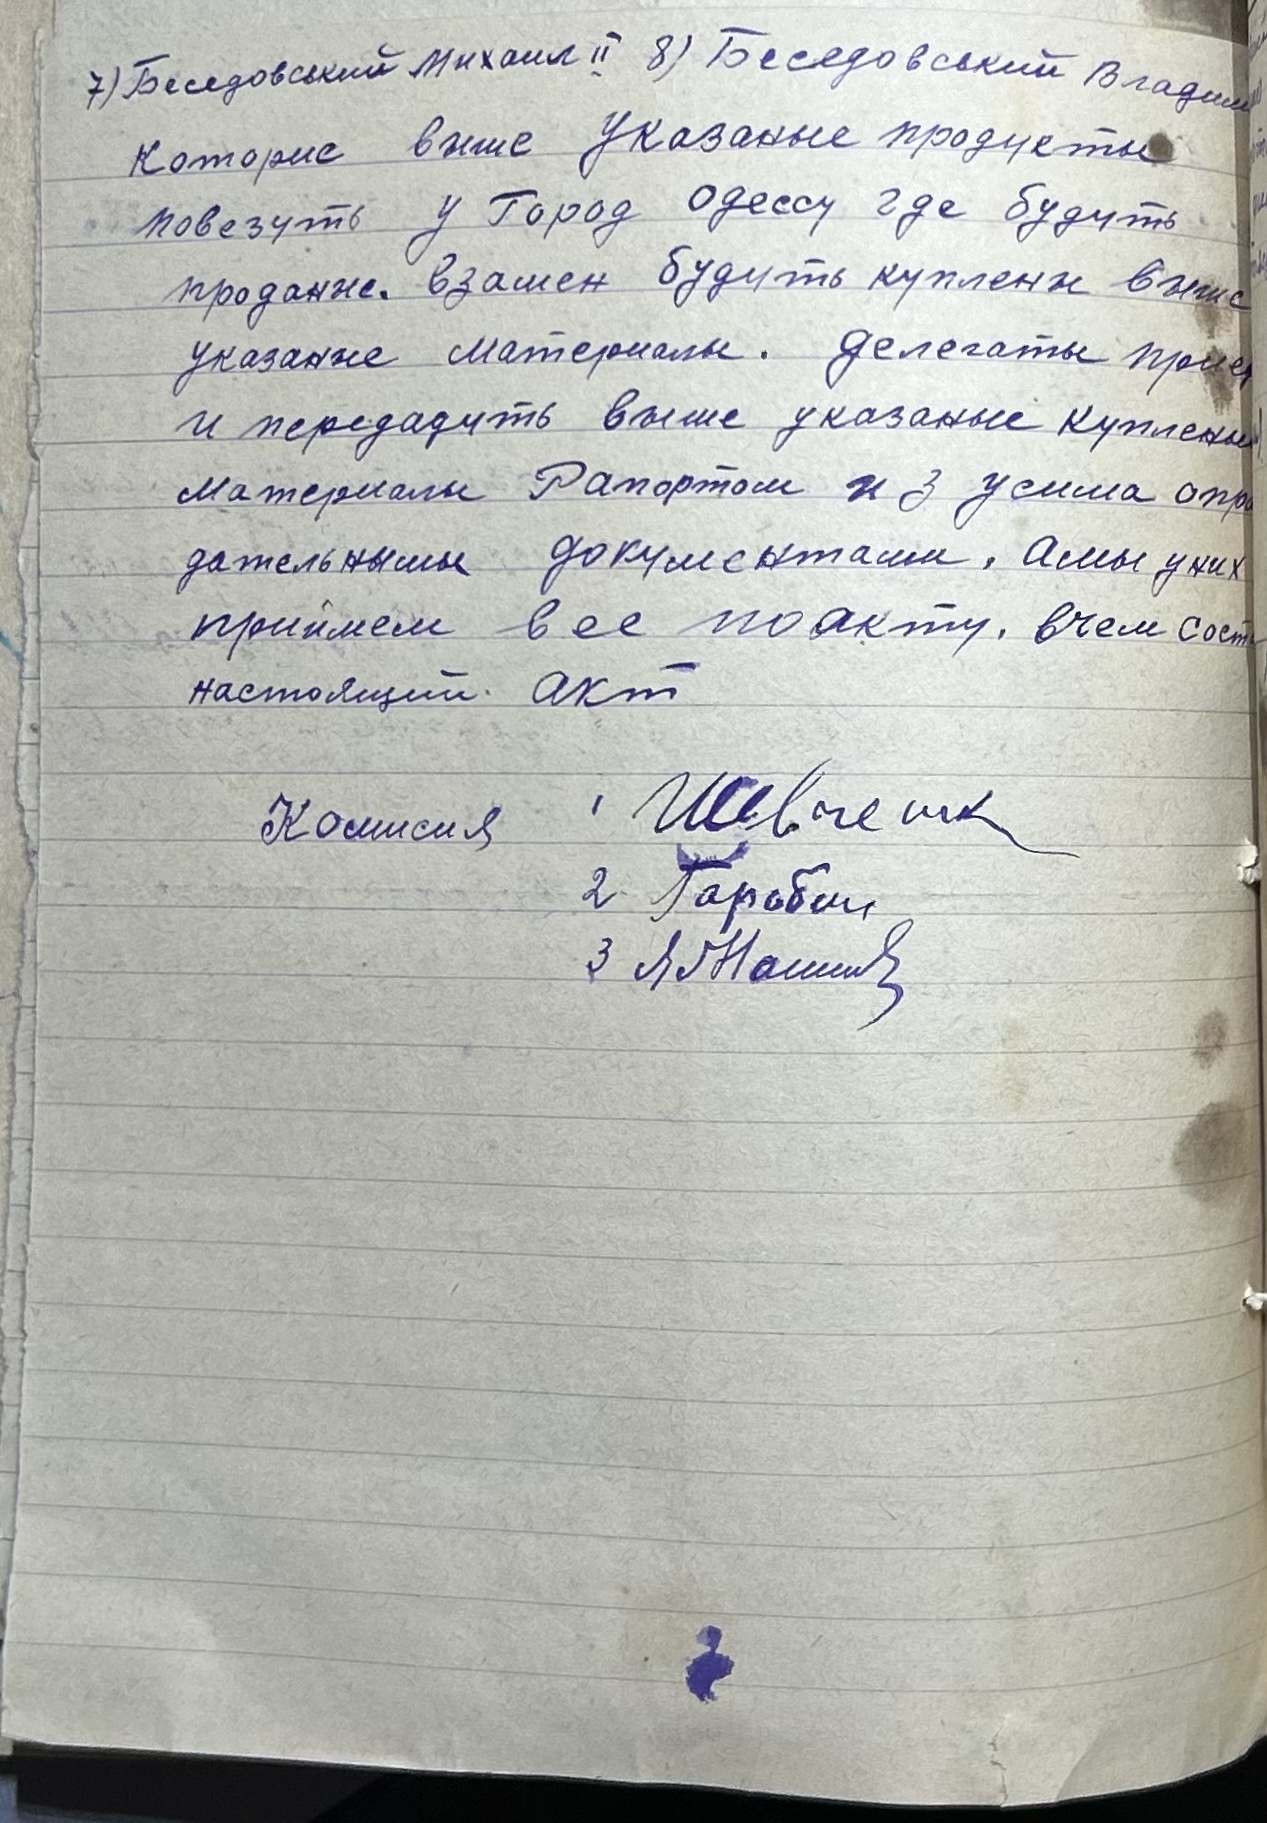 7) Беседовський Михаил II 8) Беседовський Владим
Которие выше указаные продукты
повезуть у Город Одессу где будуть
продание. взамен будуть куплени выше
указание материалы. делегаты прие
и передадуть выше указаные купленые
материалы Рапортом и з усима опра
дательнымы документами, а мы у них
приймем все по акту, в чем соста
настоящий акт
Комисия 1 Шевченк
2 Гарабан
3